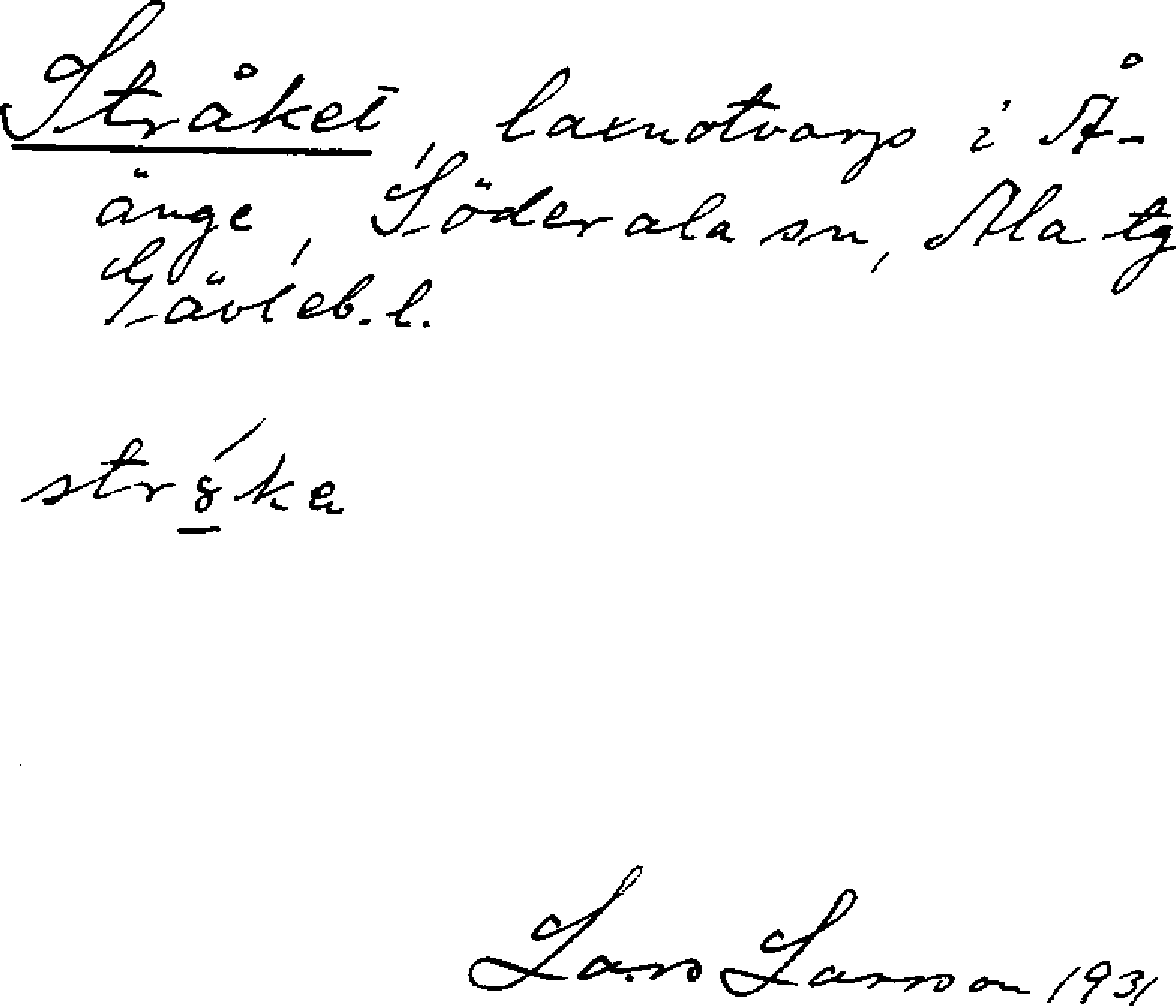 Stråket, laxnotvarp i Å-
änge, Söderala sn, Ala tg
Gävleb. l.
Lars Larsson 1931